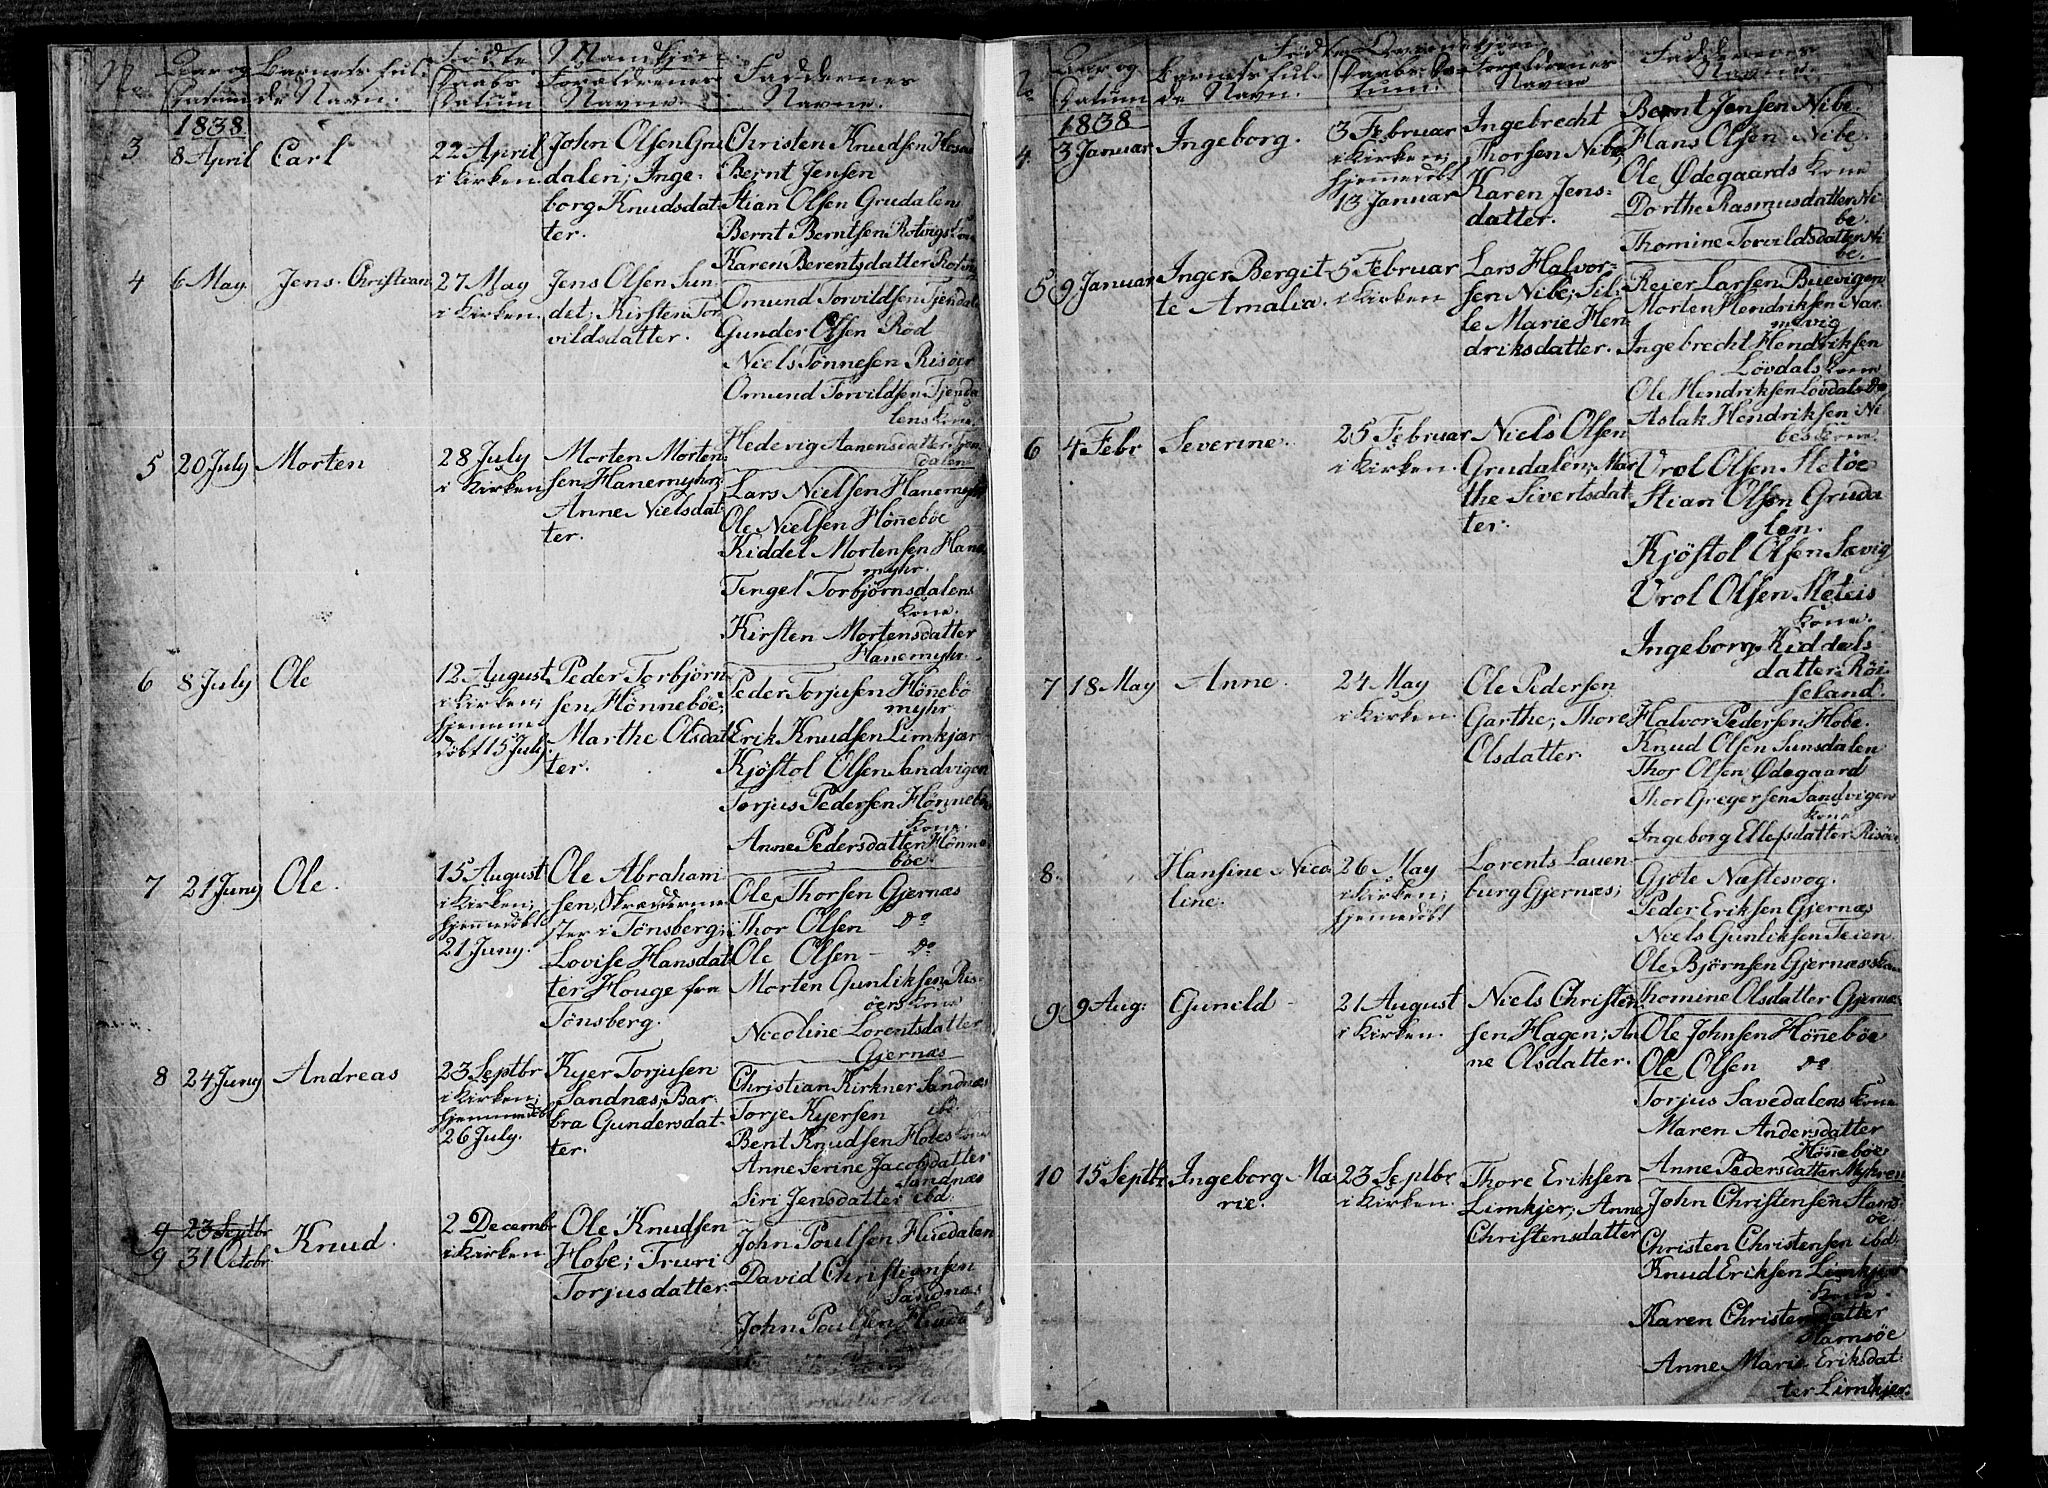 No.
Aar og Datum
Barnets fulde Navn.
Fødte Mandkjøn
Daabs Datum
Forældrenes Navne.
Faddernes Navne.
1838
3
8 April
Carl
22 April
i Kirken
John Olsen Gru
dalen; Inge-
borg Knudsdat
ter.
Christen Knudsen
Bernt Jensen
Stian Olsen Grudalen
Bernt Berntsen Rotvigs
Karen Berentsdatter
4
6 May
Jens Christian
27 May
i Kirken
Jens Olsen Sun
det; Kirsten Tor
vildsdatter.
Omund Torvildsen Tjendal
Gunder Olsen Röd
Niels Tönnesen Risöer
Omund Torvildsen Tjenda
lens Kone
Hedevig Aanensdatter Tjen
dalen
5
20 July
Morten
28 July
i Kirken
Morten Morten
sen Hanemyhr;
Anne Nielsdat
ter.
Lars Nielsen Hanemyhr
Ole Nielsen Hönneböe
Kiddel Mortensen Hane
myhr.
Tengel Torbjörnsdalens
Kone.
Kirsten Mortensdatter
Hanemyhr.
6
8 July
Ole
12 August
i Kirken;
hjemme
döbt 15 July.
Peder Torbjörn
sen Hönneböe;
Marthe Olsdat
ter.
Peder Torjusen Hönebö
myhr
Erik Knudsen Limkjær
Kjöstol Olsen Sandvigen
Torjus Pedersen Hönneb
Kone.
Anne Pedersdatter Hönne
böe.
7
21 Juny
Ole.
15 August
i Kirken;
hjemmedöbt
21 Juny.
Ole Abraham
sen, Skrædderme
ster i Tönsberg;
Lovise Hansdat
ter Houge fra
Tönsberg.
Ole Thorsen Gjernæs
Thor Olsen do
Ole Olsen - do
Morten Gunliksen Ris-
öers Kone
Nicoline Lorentsdatter
Gjernæs
8
24 Juny
Andreas
23 Septbr
i Kirken;
hjemmedöbt
26 July.
Kyer Torjusen
Sandnæs; Bar-
bra Gundersdat-
ter.
Christian Kirkner Sandnæs
Torje Kyersen ibd.
Bent Knudsen Hobes Kone
Anne Serine Jacobsdatter
Sandnæs
Siri Jensdatter ibd.
9 23 Septbr
9
31 Octobr
Knud.
2 Decembr
i Kirken
Ole Knudsen
Hobe; Truri
Torjusdatter.
John Poulsen Huedalen
David Christiansen
Sandnæs
John Poulsen Hueda
No
Aar og Datum
Barnets fulde Navn.
Fødte Qvindekjøn
Daabs Datum.
Forældrenes Navne
Faddernes Navne.
1838
4.
3 Januar
Ingeborg.
3 Februar
i Kirken;
hjemmedöbt
13 Januar
Ingebrecht
Thorsen Nibe;
Karen Jens-
datter.
Bernt Jensen Nibe.
Hans Olsen Nibe.
Ole Ødegaards Kone
Dorthe Rasmusdatter Ni
be.
Thomine Torvildsdatter Ni
be.
5
9 Januar
Inger Bergit-
te Amalia.
5 Februar
i Kirken
Lars Halvor-
sen Nibe; Sil-
le Marie Hen
driksdatter.
Reier Larsen Buevigen
Morten Hendriksen Nar
mevig
Ingebrecht Hendriksen
Lövdals Kone
Ole Hendriksen Lövdals do
Aslak Hendriksen Ni
bes Kone.
6
4 Febr
Severine.
25 Februar
i Kirken.
Niels Olsen
Grudalen; Mar
the Sivertsdat
ter.
Vrol Olsen Stetöe
Stian Olsen Gruda
len.
Kjöstol Olsen Sævig
Vrol Olsen
Kone.
Ingeborg Kiddels
datter Röi
seland.
7
18 May
Anne.
24 May
i Kirken.
Ole Pedersen
Garthe; Thore
Olsdatter.
Halvor Pedersen Hobe.
Knud Olsen Sunsdalen
Thor Olsen Ødegaard
Thor Gregersen Sandvigen
Kone
Ingeborg Ellefsdatter Risöe
8.
Hansine Nico
line.
26 May
i Kirken;
hjemmedöbt
Lorents Lauen
burg Gjernæs;
Gjöte Næstesvog.
Peder Eriksen Gjernæs
Niels Gunliksen Teien.
Ole Björnsen Gjernæs Kone
Thomine Olsdatter Gjernæs
9
9 Aug:
Gunild -
21 August
i Kirken.
Niels Christen
sen Hagen; An
ne Olsdatter.
Ole Johnsen Hönneböe
Ole Olsen do
Torjus Savedalens Kone
Maren Andersdatter
Hönneböe
Anne Pedersdatter Myhren
10
15 Septbr
Ingeborg Ma
rie.
23 Septbr
i Kirken.
Thore Eriksen
Limkjer; Anne
Christensdatter
John Christensen Hams
öe
Christen Christensen ibd.
Knud Eriksen Limkjær
Kone.
Karen Christensdatter
Hamsöe
Anne Marie Eriksdat
ter Limkjer.